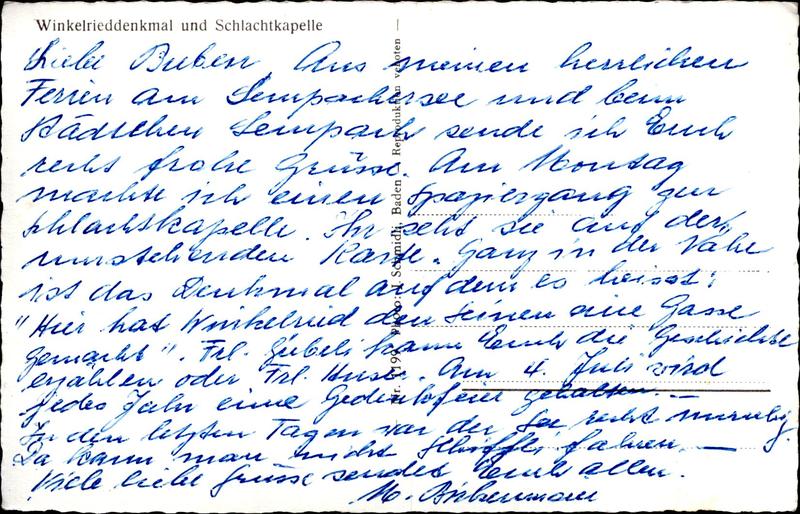 Winkelrieddenkmal und Schlachtkapelle
Liebe Buben Aus meinen herrlichen
Ferien am Sempachersee und beim
Städtchen Sempach sende ich Euch
recht frohe Grüsse. Am Montag
machte ich einen Spaziergang zur
Schlachtkapelle. Ihr seht sie auf der
umstehenden Karte. Ganz in der Nähe
ist das Denkmal auf dem es heisst:
"Hier hat Winkelried den Seinen eine Gasse
gemacht". Frl. Zubeli kann Euch die Geschichte
erzählen oder Frl. Am 4. Juli wird
jedes Jahr eine Gedenkfeier gehalten. —
In den letzten Tagen war der See recht unruhig.
Da kann man nicht Schiffli fahren. —
Viele liebe Grüsse sendet Euch allen.
M.
Photo: Schmidt, Baden — Reproduktion verboten